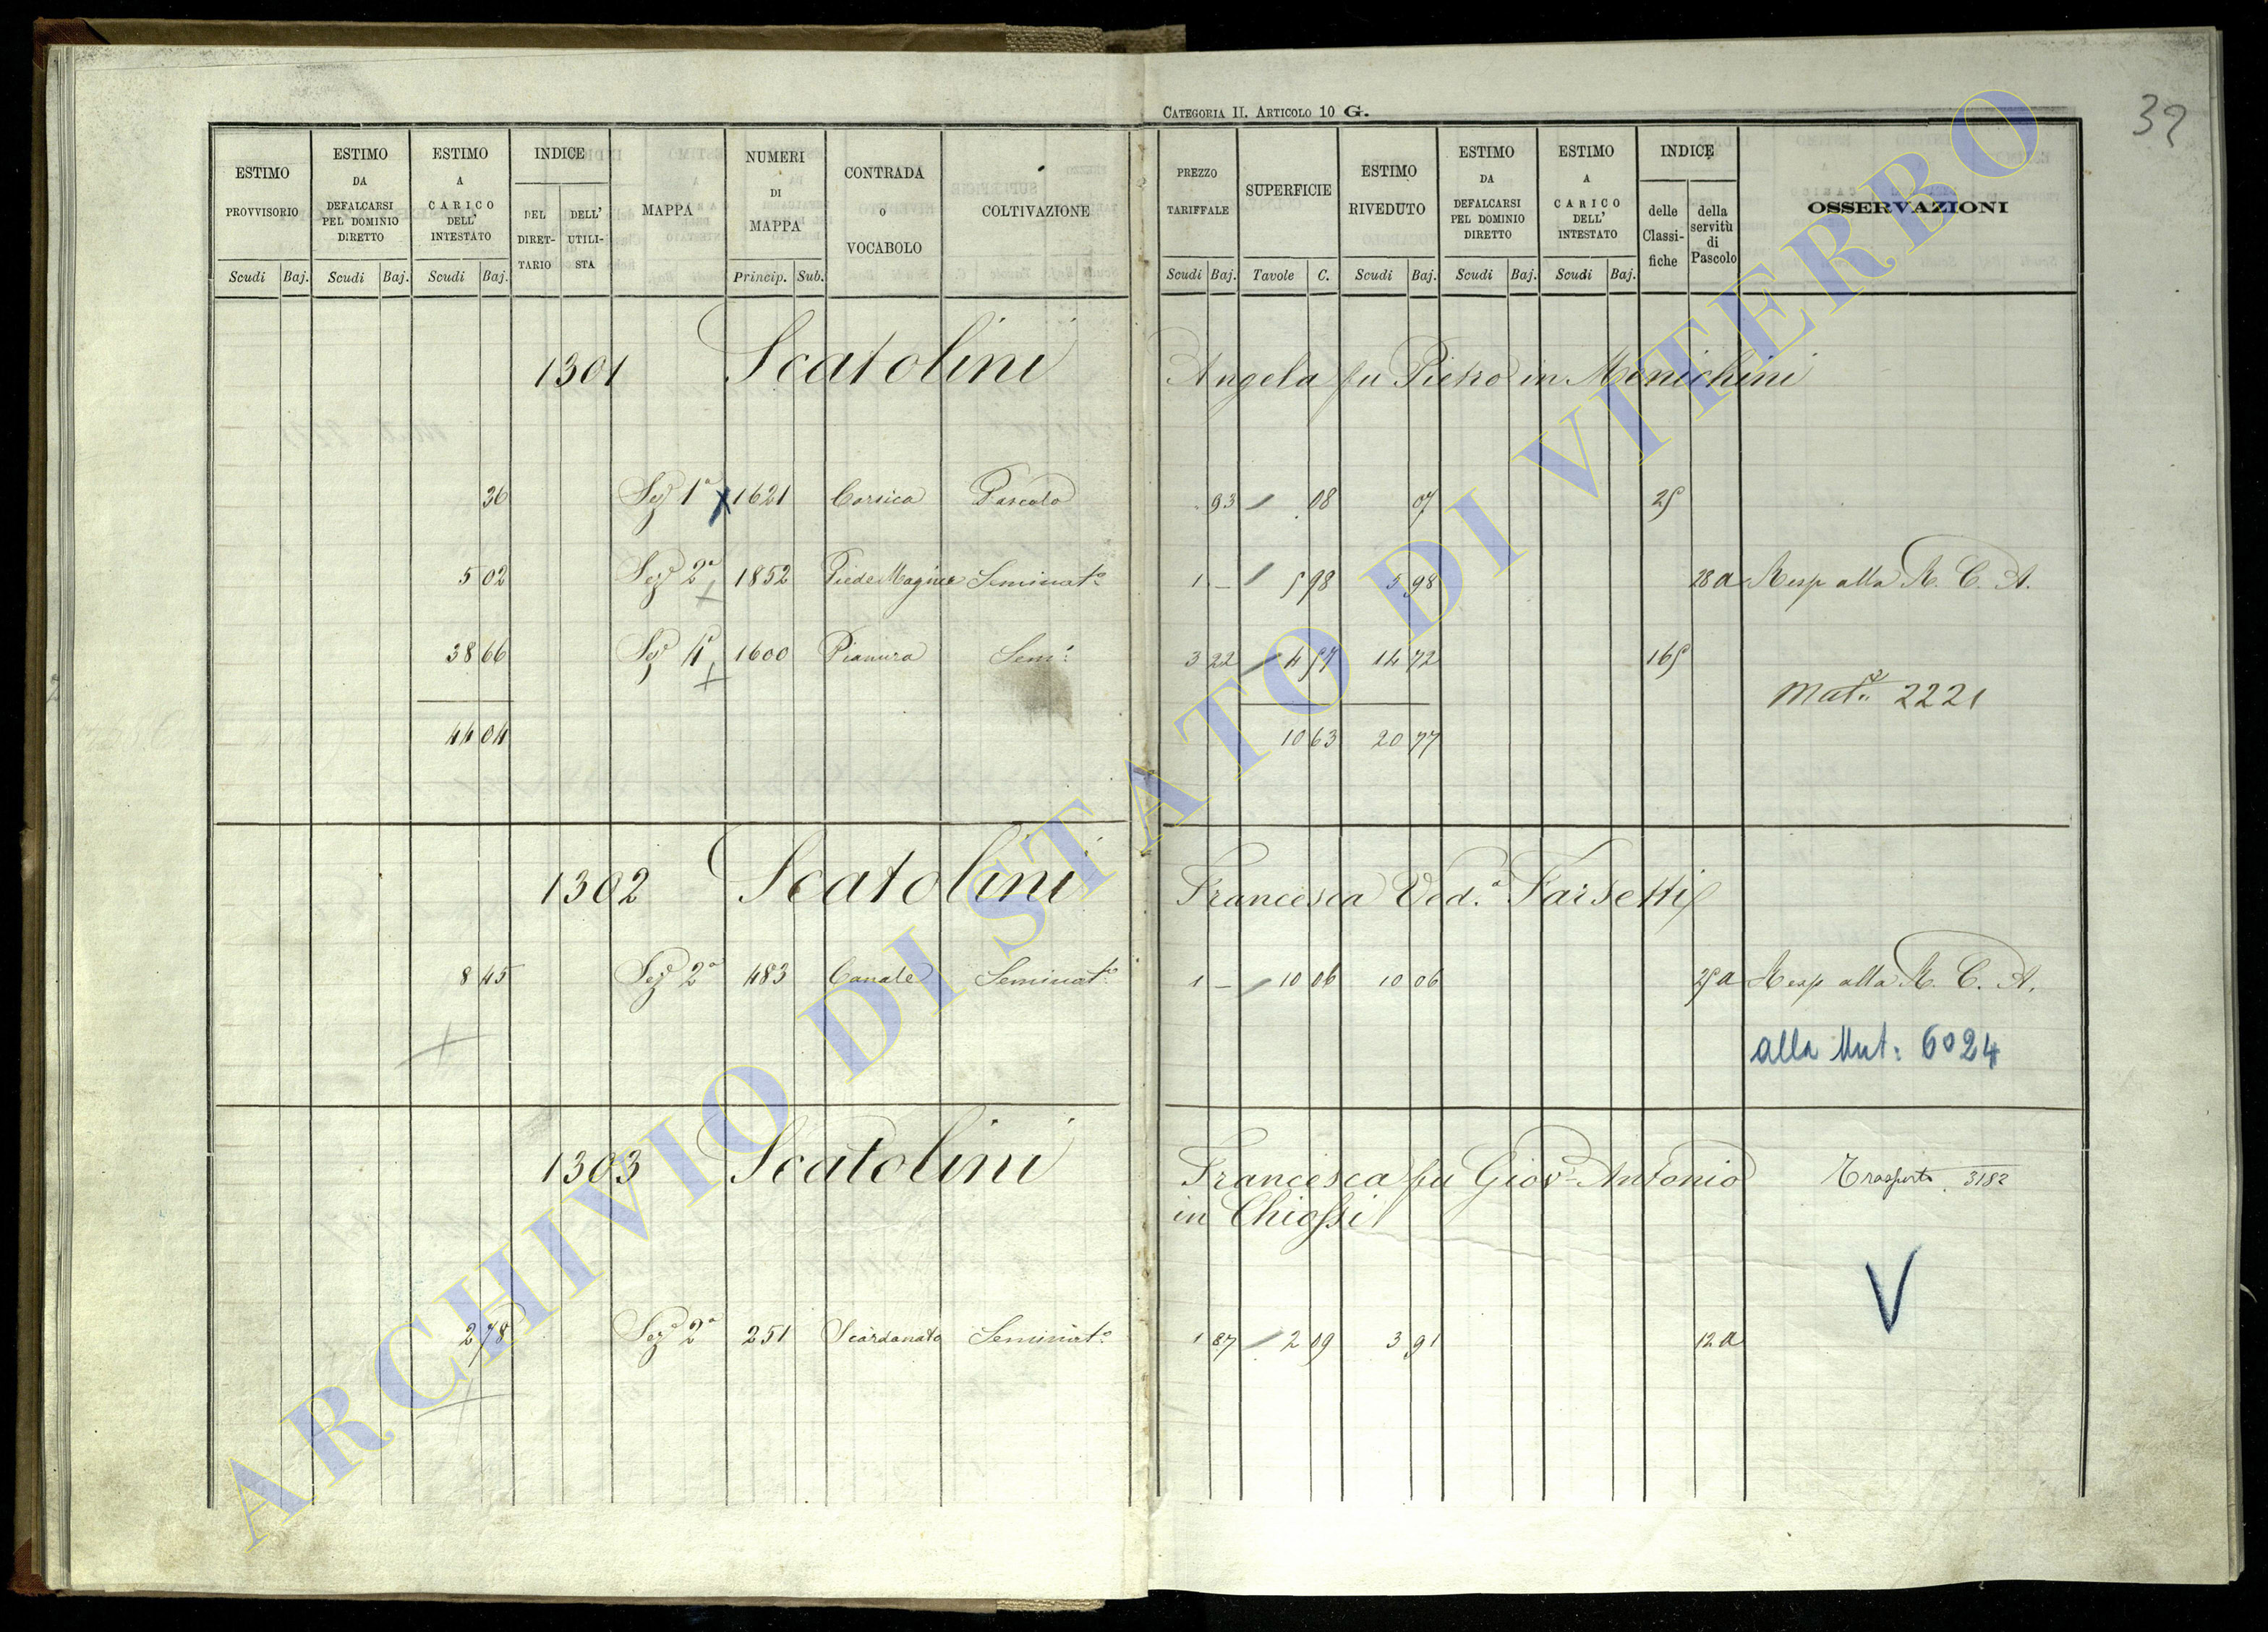 CATEGORIA II. ARTICOLO 10 G.
32
ESTIMO PROVVISORIO Scudi Baj.
ESTIMO DA DEFALCARSI PEL DOMINIO DIRETTO Scudi Baj.
ESTIMO A CARICO DELL' INTESTATO Scudi Baj.
INDICE DEL DIRET-TARIO DELL' UTILI-STA
MAPPA
NUMERI DI MAPPA Princip. Sub.
CONTRADA o VOCABOLO
COLTIVAZIONE
PREZZO TARIFFALE Scudi Baj.
SUPERFICIE Tavole C.
ESTIMO RIVEDUTO Scudi Baj.
ESTIMO DA DEFALCARSI PEL DOMINIO DIRETTO Scudi Baj.
ESTIMO A CARICO DELL' INTESTATO Scudi Baj.
INDICE delle Classi-fiche della servitù di Pascolo
OSSERVAZIONI
1301 Scatolini Angela fu Pietro in Menichini
36 Sezº 1ª 1621 Corsica Pascolo 93 / 08 07 25
5 02 Sezº 2ª 1852 Seminatº 1 – / 5 98 5 98 28 a Resp alla R. C. A.
38 66 Sezº 1600 Pianura Semº 3 22 / 4 57 14 72 165
2221
44 04 10 63 20 77
1302 Scatolini Francesca Ved.ª Farsetti
8 45 Sezº 2ª 483 Canale Seminatº 1 – / 10 06 10 06 25 a Resp alla R. C. A.
alla Mut: 6024
1303 Scatolini Francesca fu Giovº Antonio Trasporto 3182
in Chiossi
V
2 78 Sezº 2ª 251 Scardanato Seminatº 1 87 / 2 09 3 91 12 a
ARCHIVIO DI STATO DI VITERBO